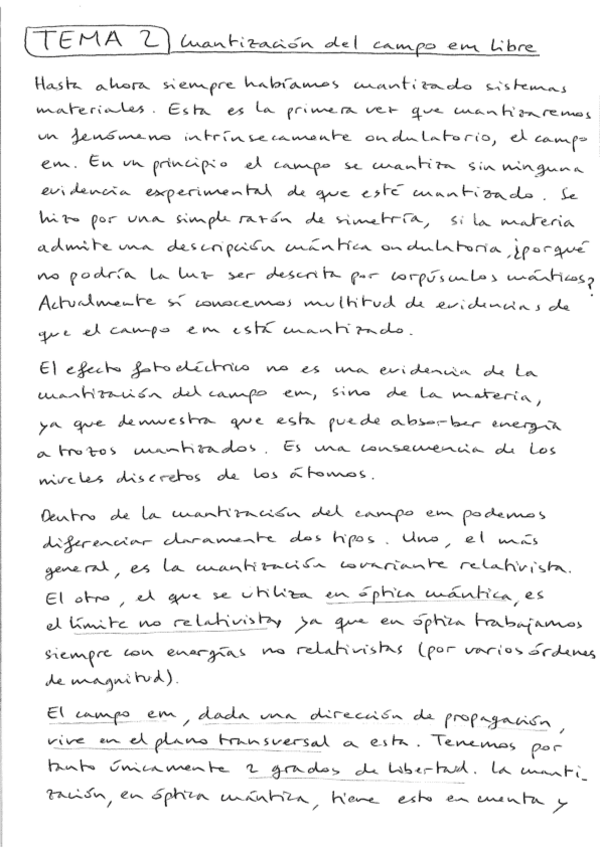 TEMA 2 Cuantización del campo em libre
Hasta ahora siempre habíamos cuantizado sistemas
materiales. Esta es la primera vez que cuantizaremos
un fenómeno intrínsecamente ondulatorio, el campo
em. En un principio el campo se cuantiza sin ninguna
evidencia experimental de que esté cuantizado. Se
hizo por una simple razón de simetría, si la materia
admite una descripción cuántica ondulatoria, ¿porqué
no podría la luz ser descrita por corpúsculos cuánticos?
Actualmente sí conocemos multitud de evidencias de
que el campo em está cuantizado.
El efecto fotoeléctrico no es una evidencia de la
cuantización del campo em, sino de la materia,
ya que demuestra que esta puede absorber energía
a trozos cuantizados. Es una consecuencia de los
niveles discretos de los átomos.
Dentro de la cuantización del campo em podemos
diferenciar claramente dos tipos. Uno, el más
general, es la cuantización covariante relativista.
El otro, el que se utiliza en óptica cuántica, es
el límite no relativista, ya que en óptica trabajamos
siempre con energías no relativistas (por varios órdenes
de magnitud).
El campo em, dada una dirección de propagación,
vive en el plano transversal a esta. Tenemos por
tanto únicamente 2 grados de libertad. La cuanti-
zación, en óptica cuántica, tiene esto en cuenta y